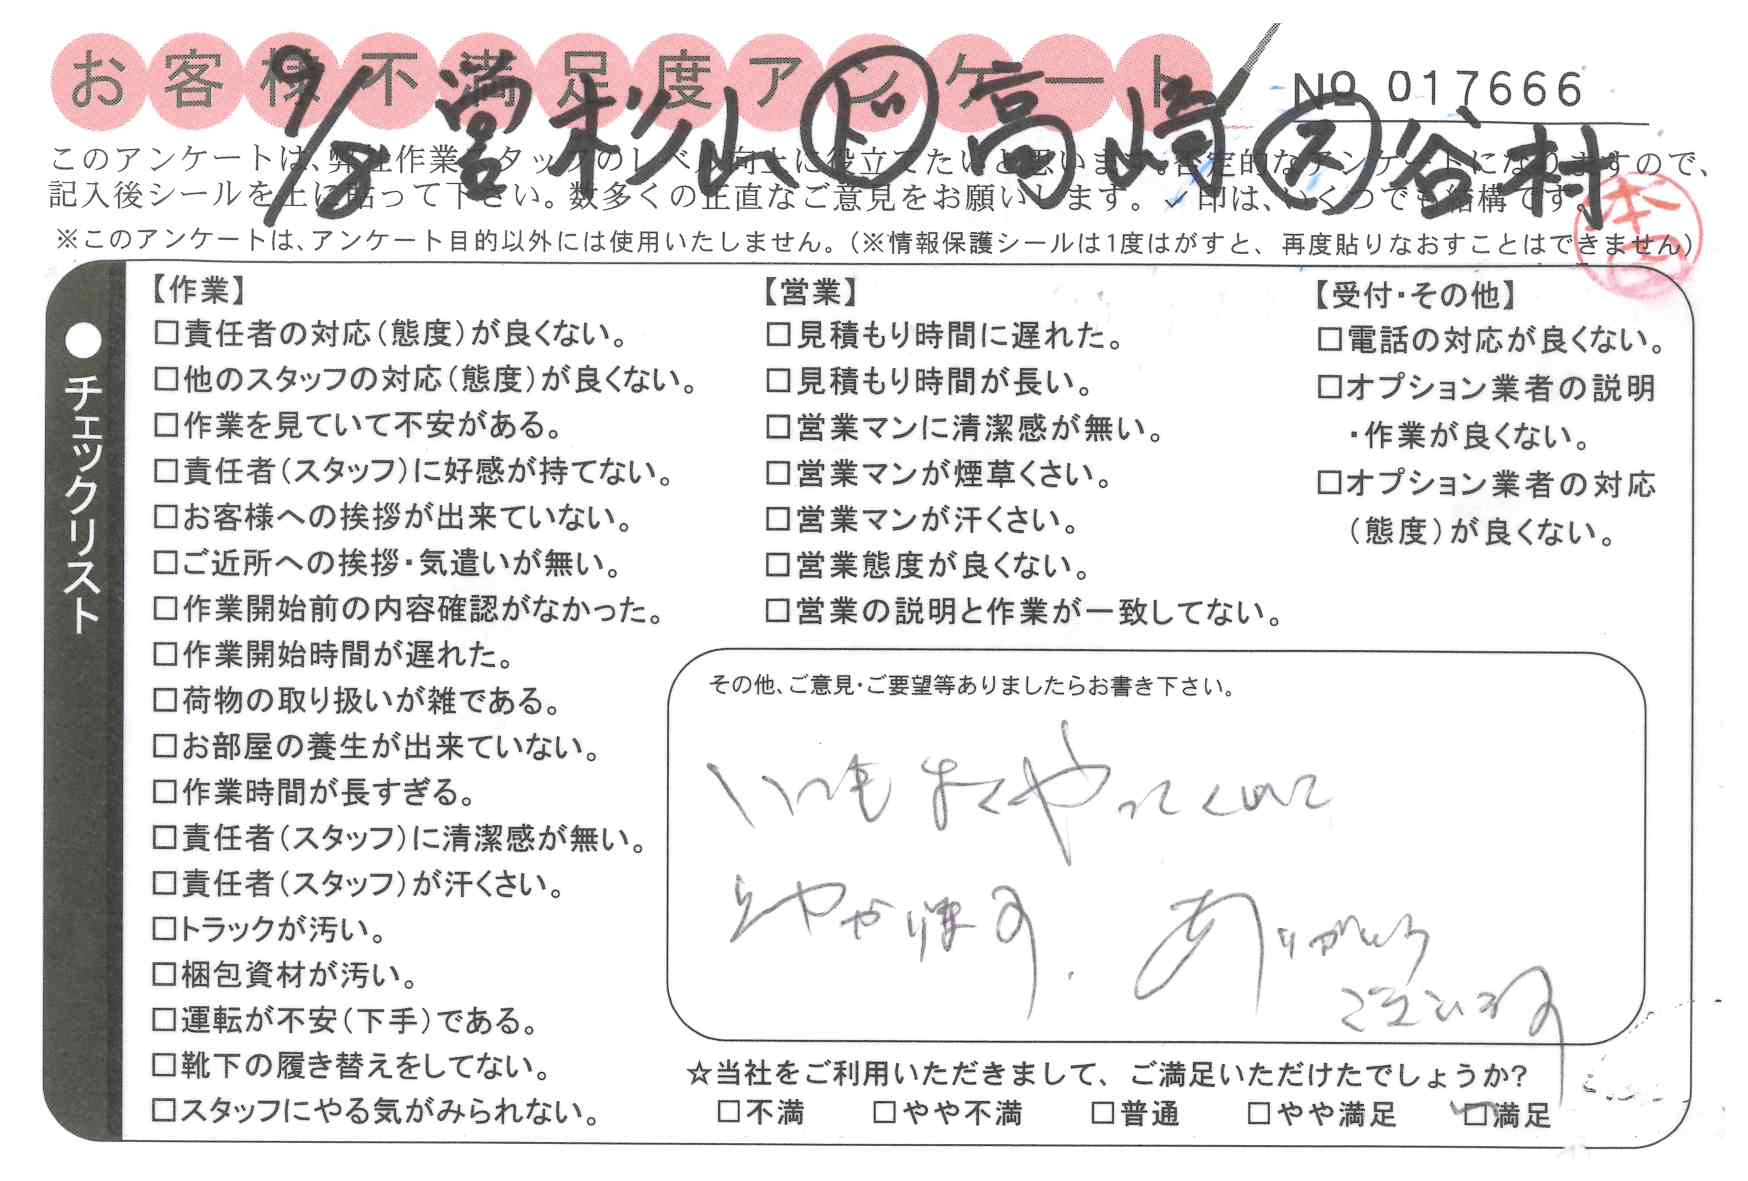 お客様不満足度アンケート
NO 017666
9/8 営 杉山 ド 高崎 ス 谷村
このアンケートは、弊社作業スタッフのレベル向上に役立てたいと思います。否定的なアンケートになりますので、
記入後シールを上に貼って下さい。数多くの正直なご意見をお願いします。✓印は、いくつでも結構です。
※このアンケートは、アンケート目的以外には使用いたしません。（※情報保護シールは1度はがすと、再度貼りなおすことはできません）
●チェックリスト
【作業】
□責任者の対応（態度）が良くない。
□他のスタッフの対応（態度）が良くない。
□作業を見ていて不安がある。
□責任者（スタッフ）に好感が持てない。
□お客様への挨拶が出来ていない。
□ご近所への挨拶・気遣いが無い。
□作業開始前の内容確認がなかった。
□作業開始時間が遅れた。
□荷物の取り扱いが雑である。
□お部屋の養生が出来ていない。
□作業時間が長すぎる。
□責任者（スタッフ）に清潔感が無い。
□責任者（スタッフ）が汗くさい。
□トラックが汚い。
□梱包資材が汚い。
□運転が不安（下手）である。
□靴下の履き替えをしてない。
□スタッフにやる気がみられない。
【営業】
□見積もり時間に遅れた。
□見積もり時間が長い。
□営業マンに清潔感が無い。
□営業マンが煙草くさい。
□営業マンが汗くさい。
□営業態度が良くない。
□営業の説明と作業が一致してない。
【受付・その他】
□電話の対応が良くない。
□オプション業者の説明
・作業が良くない。
□オプション業者の対応
（態度）が良くない。
その他、ご意見・ご要望等ありましたらお書き下さい。
いつもよくやってくれて
ありがとう
ございます
☆当社をご利用いただきまして、ご満足いただけたでしょうか?
□不満 □やや不満 □普通 □やや満足 □満足